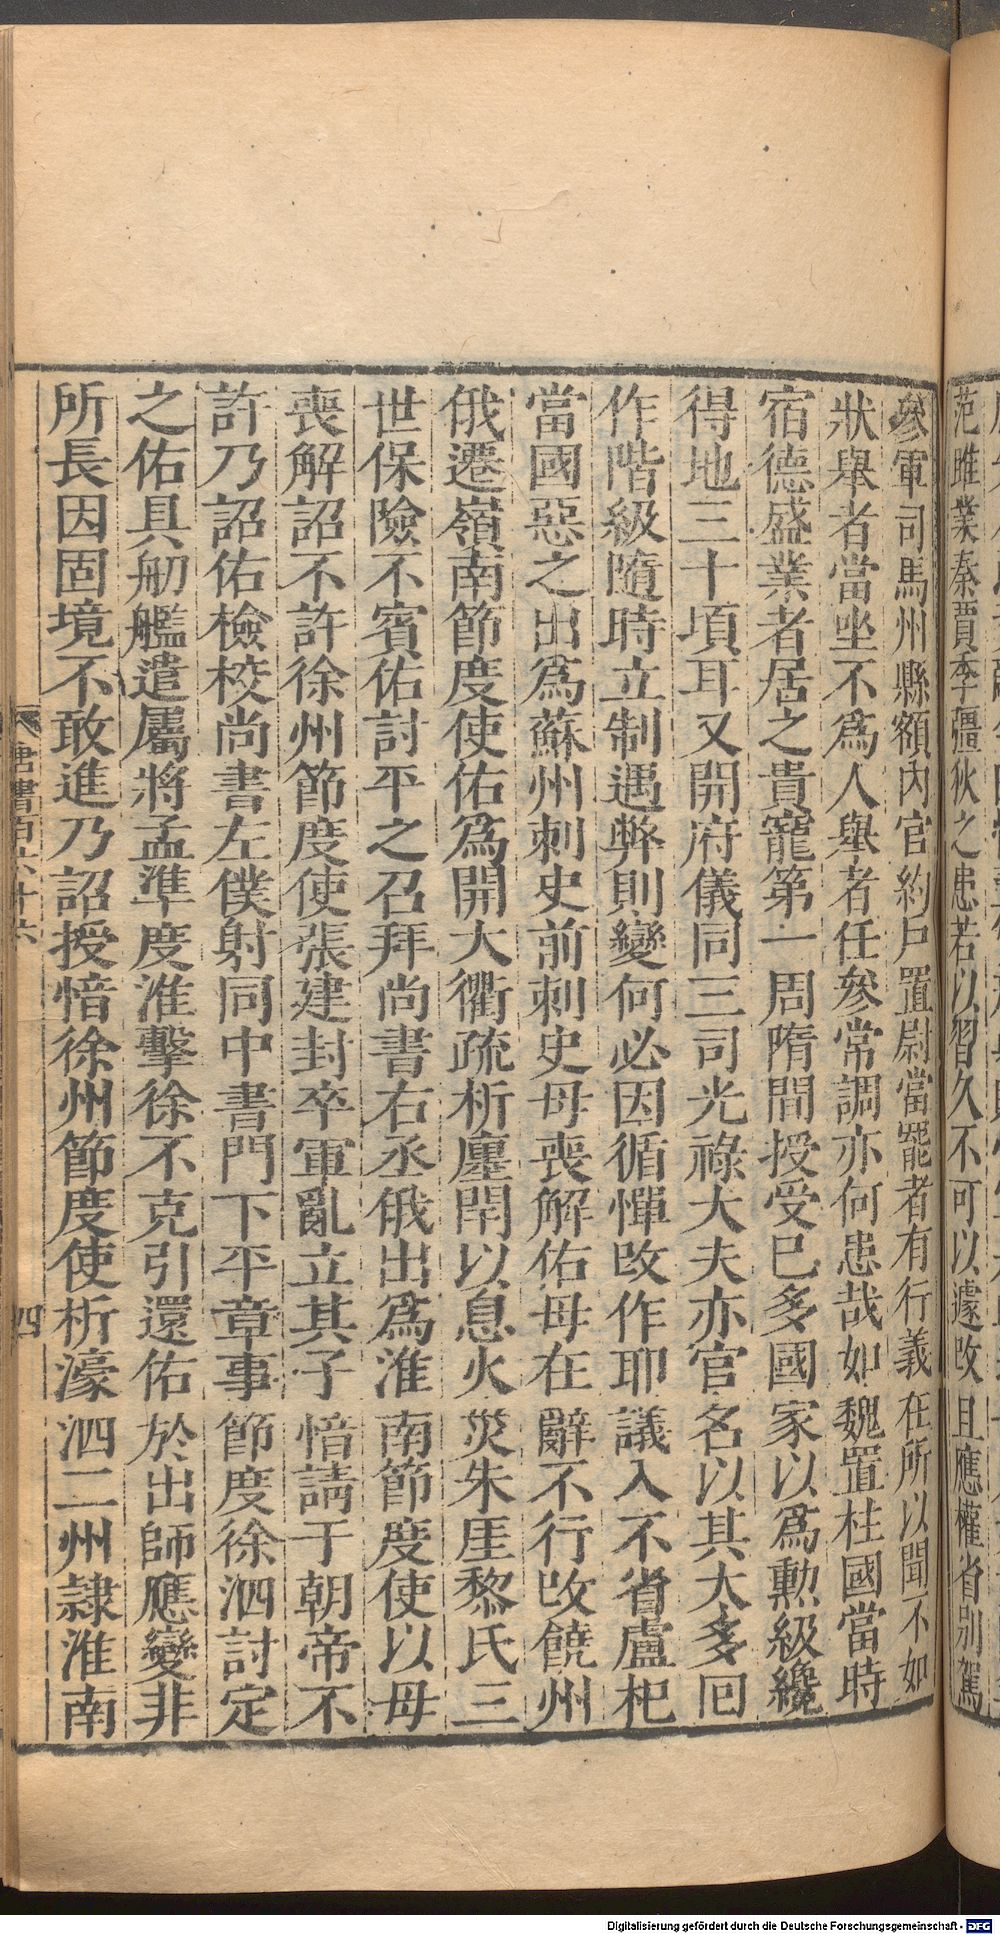 范雎業秦賈季彊狄之患若以習久不可以遽改且應權省別駕
參軍司馬州縣額內官約戶置尉當罷者有行義在所以聞不如
狀舉者當坐不爲人舉者任參常調亦何患哉如魏置柱國當時
宿德盛業者居之貴寵第一周隋間授受已多國家以爲勲級纔
得地三十頃耳又開府儀同三司光祿大夫亦官名以其太多囘
作階級隨時立制遇弊則變何必因循憚改作耶議入不省盧杞
當國惡之出爲蘇州刺史前刺史母喪解佑母在辭不行改饒州
俄遷嶺南節度使佑爲開大衢疏析廛閈以息火災朱厓黎氏三
世保險不賓佑討平之召拜尚書右丞俄出爲淮南節度使以母
喪解詔不許徐州節度使張建封卒軍亂立其子愔請于朝帝不
許乃詔佑檢校尚書左僕射同中書門下平章事節度徐泗討定
之佑具舠艦遣屬將孟準度淮擊徐不克引還佑於出師應變非
所長因固境不敢進乃詔授愔徐州節度使析濠泗二州隷淮南
唐書百六十六
四
Digitalisierung gefördert durch die Deutsche Forschungsgemeinschaft - DFG